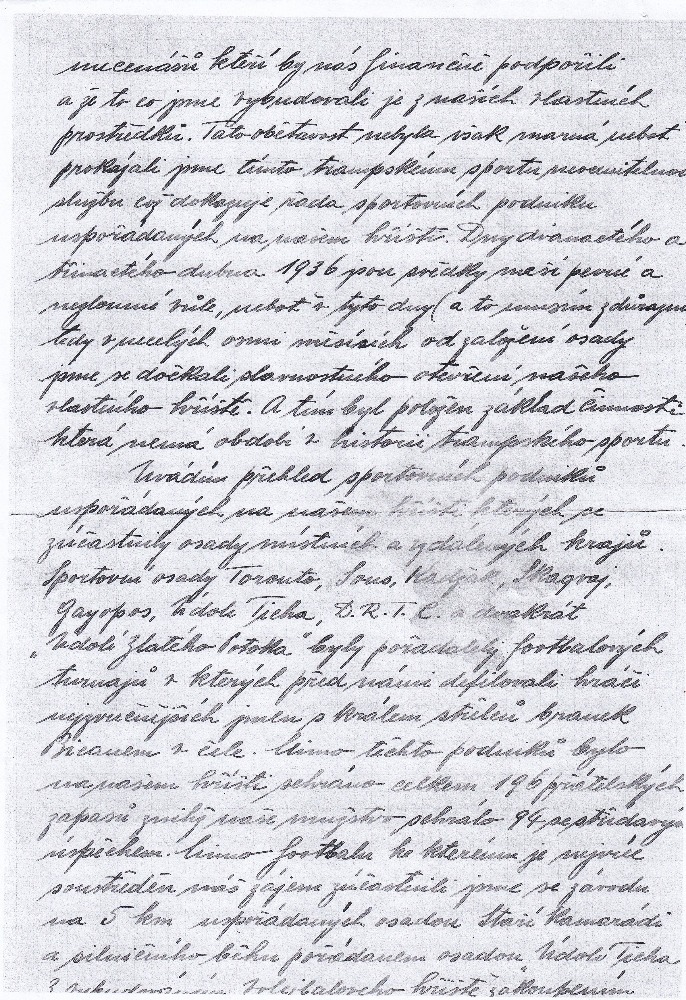 mecenášů kteří by nás finančně podpořili
a že to co jsme vybudovali je z našich vlastních
prostředků. Tato obětavost nebyla však marná neboť
prokázali jsme tímto trampskému sportu neocenitelnou
službu což dokazuje řada sportovních podniků
uspořádaných na našem hřišti. Dny dvanactého a
třinactého dubna 1936 jsou svědky naší pevné a
nezlomné vůle, neboť v tyto dny (a to musím zdůrazni
tedy v necelých osmi měsících od založení osady
jsme se dočkali slavnostního otevření našeho
vlastního hřiště. A tím byl položen základ činnosti
která nemá období v historii trampského sportu.
Uvádím přehled sportovních podniků
uspořádaných na našem hřišti kterých se
zúčastnily osady místních a vzdálených krajů.
Sportovní osady Toronto, Kadjak, Skagvaj,
Gayopos, Údolí Ticha, D.R.T.C. a dvakrát
„Údolí Zlatého Potoka" byly pořadately footbalových
turnajů v kterých před námi defilovali hráči
nejzvučnějších jmen s králem střelců branek
Bicanem v čele. Mimo těchto podniků bylo
na našem hřišti sehráno celkem 196 přátelských
zápasů z nichž naše mužstvo sehrálo 94 se střídavým
úspěchem. Mimo footbalu ke kterému je nejvíce
soustředěn náš zájem zúčastnili jsme se závodu
na 5 km uspořádaných osadou Staří Kamarádi
a silničního běhu pořádaném osadou Údolí Ticha
volejbalového hřiště zakoupením